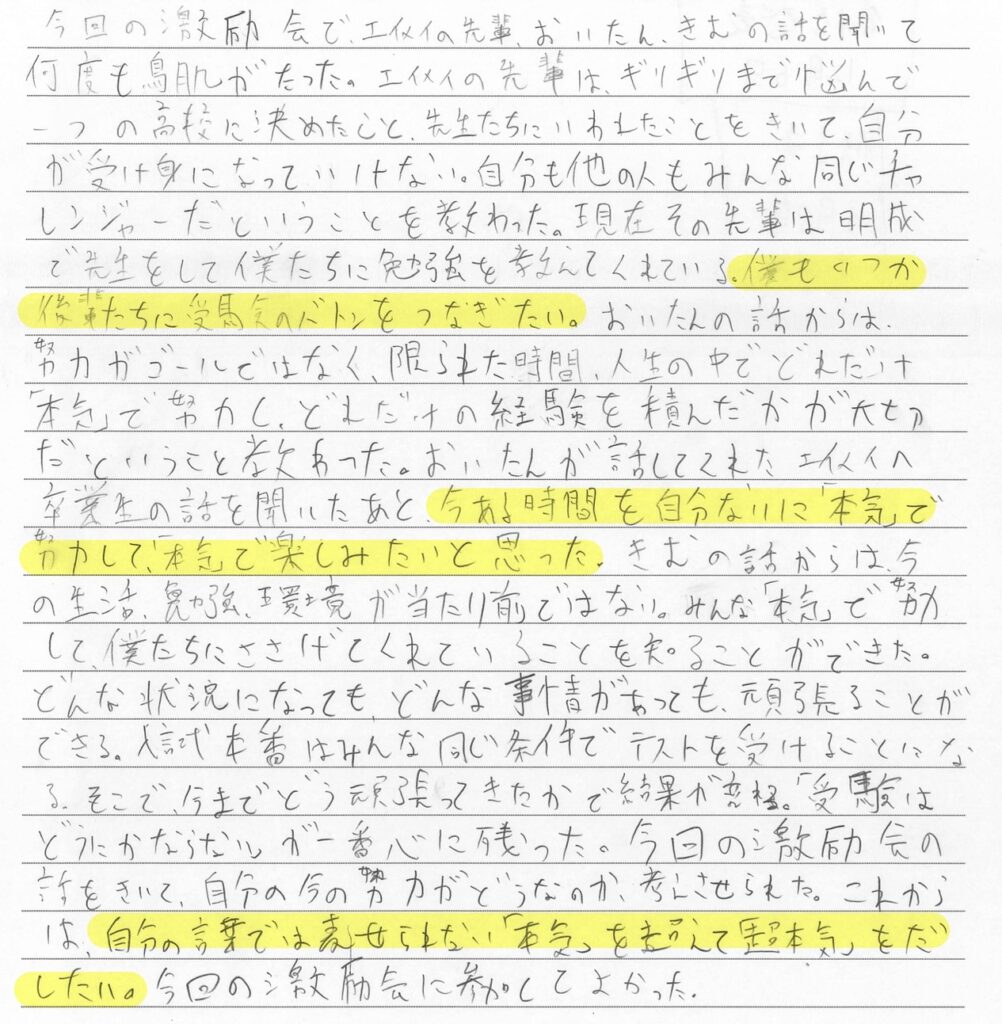 今回の激励会で、エイメイの先輩、おいたん、きむの話を聞いて
何度も鳥肌がたった。エイメイの先輩は、ギリギリまで悩んで
一つの高校に決めたこと、先生たちにいわれたことをきいて、自分
が受け身になっていけない。自分も他の人もみんな同じチャ
レンジャーだということを教わった。現在その先輩は明成
で先生をして僕たちに勉強を教えてくれている。僕もいつか
後輩たちに受験のバトンをつなぎたい。おいたんの話からは、
努力がゴールではなく、限られた時間、人生の中でどれだけ
「本気」で努力し、どれだけの経験を積んだかが大切
だということ教わった。おいたんが話してくれたエイメイの
卒業生の話を聞いたあと、今ある時間を自分なりに「本気」で
努力して、「本気」で楽しみたいと思った。きむの話からは、今
の生活、勉強、環境が当たり前ではない。みんな「本気」で努力
して、僕たちにささげてくれていることを知ることができた。
どんな状況になっても、どんな事情があっても、頑張ることが
できる。入試本番はみんな同じ条件でテストを受けることにな
る。そこで、今までどう頑張ってきたかで結果が変わる。「受験は
どうにかならない」が一番心に残った。今回の激励会の
話をきいて、自分の今の努力がどうなのか、考えさせられた。これから
は、自分の言葉では表せられない「本気」を超えて「超本気」をだ
したい。今回の激励会に参加してよかった。